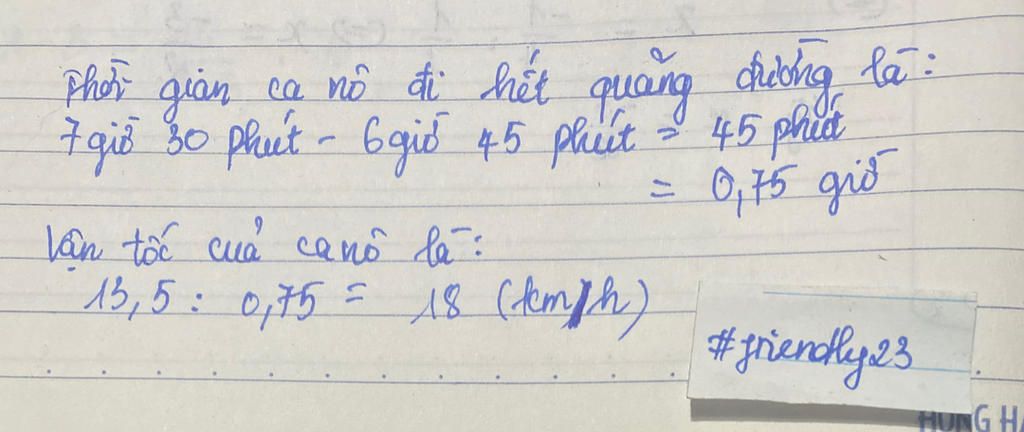 Thời gian ca nô đi hết quãng đường là:
7 giờ 30 phút - 6 giờ 45 phút = 45 phút
= 0,75 giờ
Vận tốc của ca nô là:
13,5 : 0,75 = 18 (km/h)
#friendly23